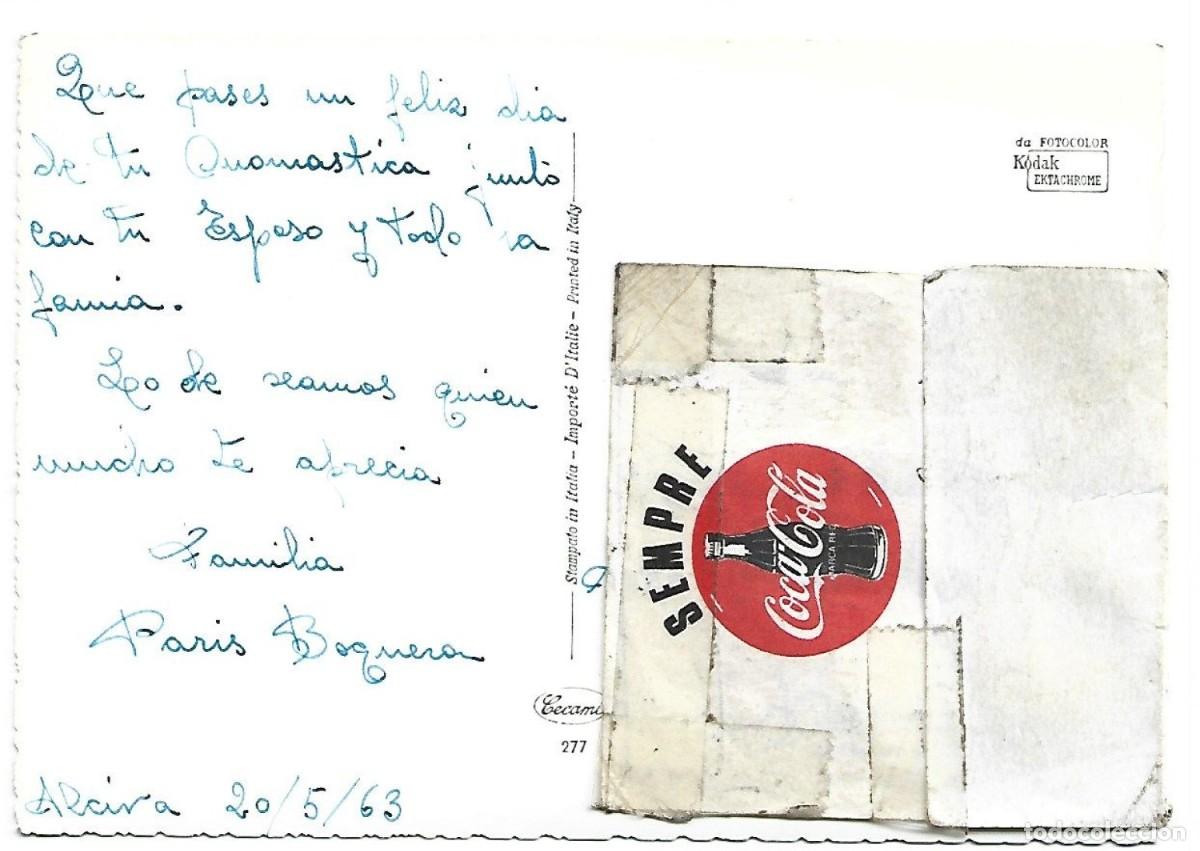 Que pases un feliz dia
de tu Onomastica junto
con tu Esposo y todo la
famia.
Lo de seamos quien
mucho te aprecia
Familia
Paris Boquera
Alcira 20/5/63
Stampato in Italia - Importé D'Italie - Printed in Italy
Cecami
277
da FOTOCOLOR
Kodak
EKTACHROME
SEMPRE
Coca-Cola
MARCA REG
todocoleccion